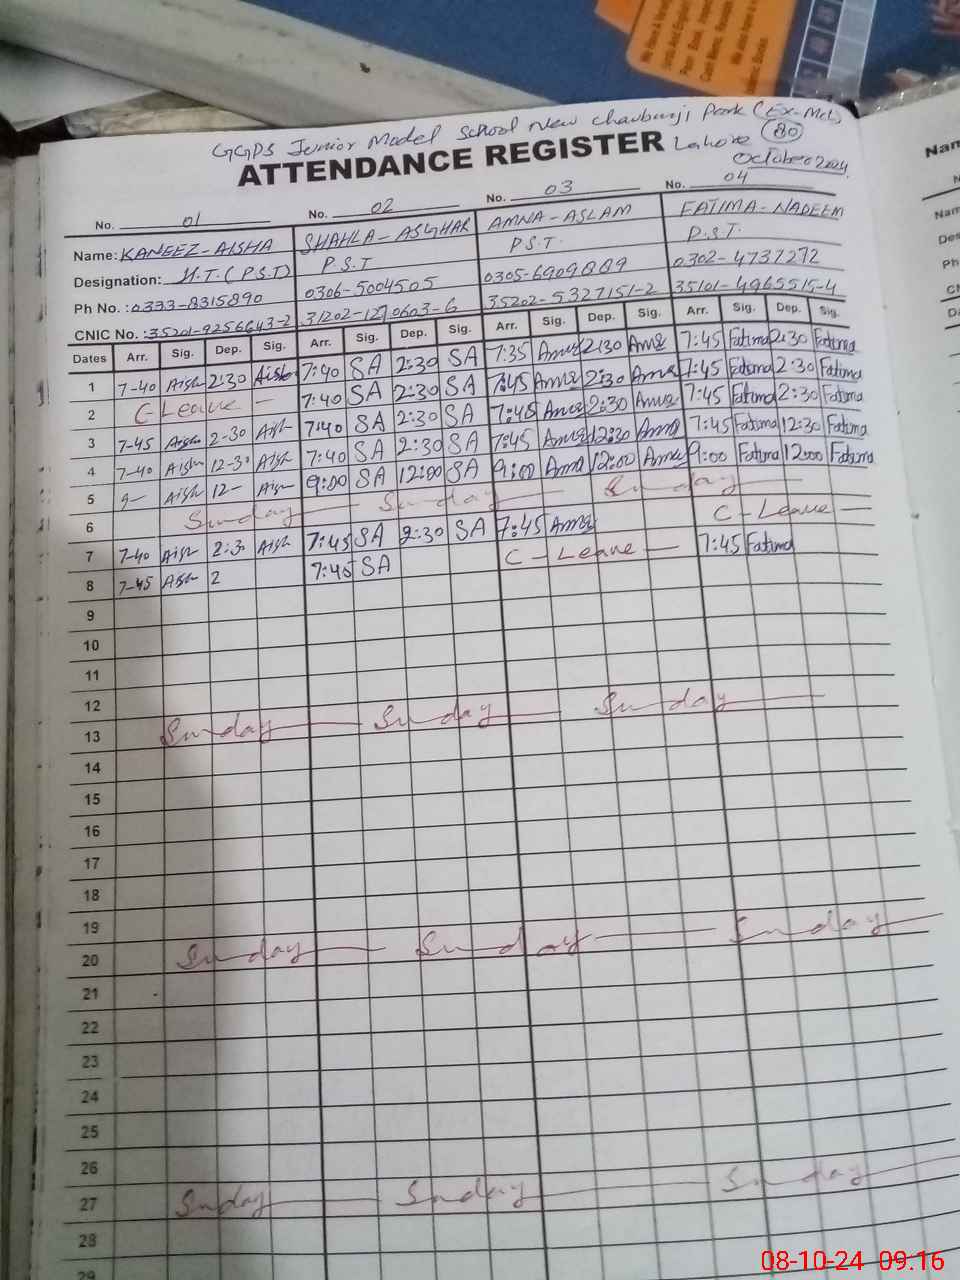 GGPS Junior Model School New Chauburji Park (Ex-Mcl)
ATTENDANCE REGISTER Lahore 80
October 2024
No. 01 No. 02 No. 03 No. 04
Name: KANEEZ-AISHA SHAHLA-ASGHAR AMNA-ASLAM FATIMA-NADEEM
Designation: H.T.(P.S.T) P.S.T P.S.T. P.S.T.
Ph No.: 0333-8315890 0306-5004505 0305-6909889 0302-4737272
CNIC No.: 35201-9256643-2 31202-1270603-6 35202-5327151-2 35101-4965515-4
Dates Arr. Sig. Dep. Sig. Arr. Sig. Dep. Sig. Arr. Sig. Dep. Sig. Arr. Sig. Dep. Sig.
1 7-40 Aish 2:30 Aish 7:40 SA 2:30 SA 7:35 Amna 2:30 Amna 7:45 Fatima 2:30 Fatima
2 C-Leave - 7:40 SA 2:30 SA 7:45 Amna 2:30 Amna 7:45 Fatima 2:30 Fatima
3 7-45 Aish 2-30 Aish 7:40 SA 2:30 SA 7:45 Amna 2:30 Amna 7:45 Fatima 2:30 Fatima
4 7-40 Aish 12-30 Aish 7:40 SA 2:30 SA 7:45 Amna 12:30 Amna 7:45 Fatima 12:30 Fatima
5 9- Aish 12- Aish 9:00 SA 12:00 SA 9:00 Amna 12:00 Amna 9:00 Fatima 12:00 Fatima
6 Sunday Sunday Sunday
7 7-40 Aish 2:3 Aish 7:45 SA 2:30 SA 7:45 Amna C-Leave -
8 7-45 Aish 2 7:45 SA C-Leave - 7:45 Fatima
9
10
11
12
13 Sunday Sunday Sunday
14
15
16
17
18
19
20 Sunday Sunday Sunday
21
22
23
24
25
26
27 Sunday Sunday Sunday
28
29
08-10-24 09.16